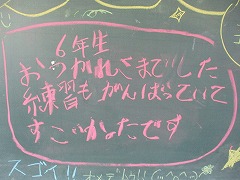 6年生
おつかれさまでした
練習もがんばっていて
すごかったです
スゴイ!! オメデトウ!!